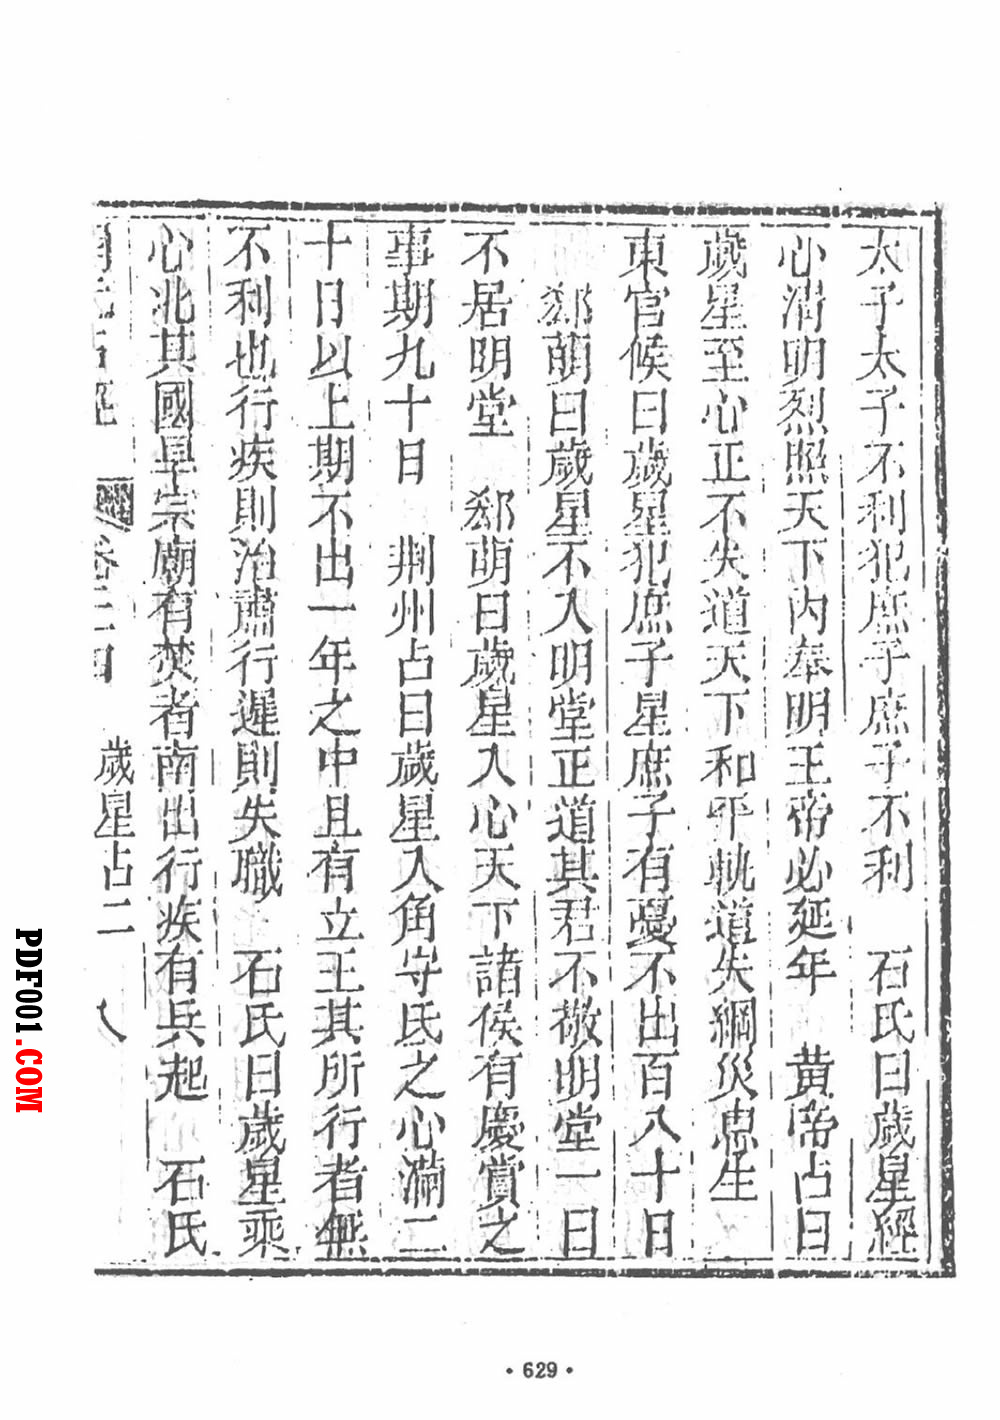 太子太子不利犯庶子庶子不利　石氏曰歲星經
心清明烈照天下內奉明王帝必延年　黃帝占曰
歲星至心正不失道天下和平執道失綱災患生
東官候曰歲星犯庶子星庶子有憂不出百八十日
郄萌曰歲星不入明堂正道其君不敬明堂一曰
不居明堂　郄萌曰歲星入心天下諸侯有慶賞之
事期九十日　荆州占曰歲星入角守氐之心滿二
十日以上期不出一年之中且有立王其所行者無
不利也行疾則治肅行遲則失職　石氏曰歲星乘
心北其國旱宗廟有焚者南出行疾有兵起　石氏
卷二四　歲星占二　八
PDF001.COM
·629·